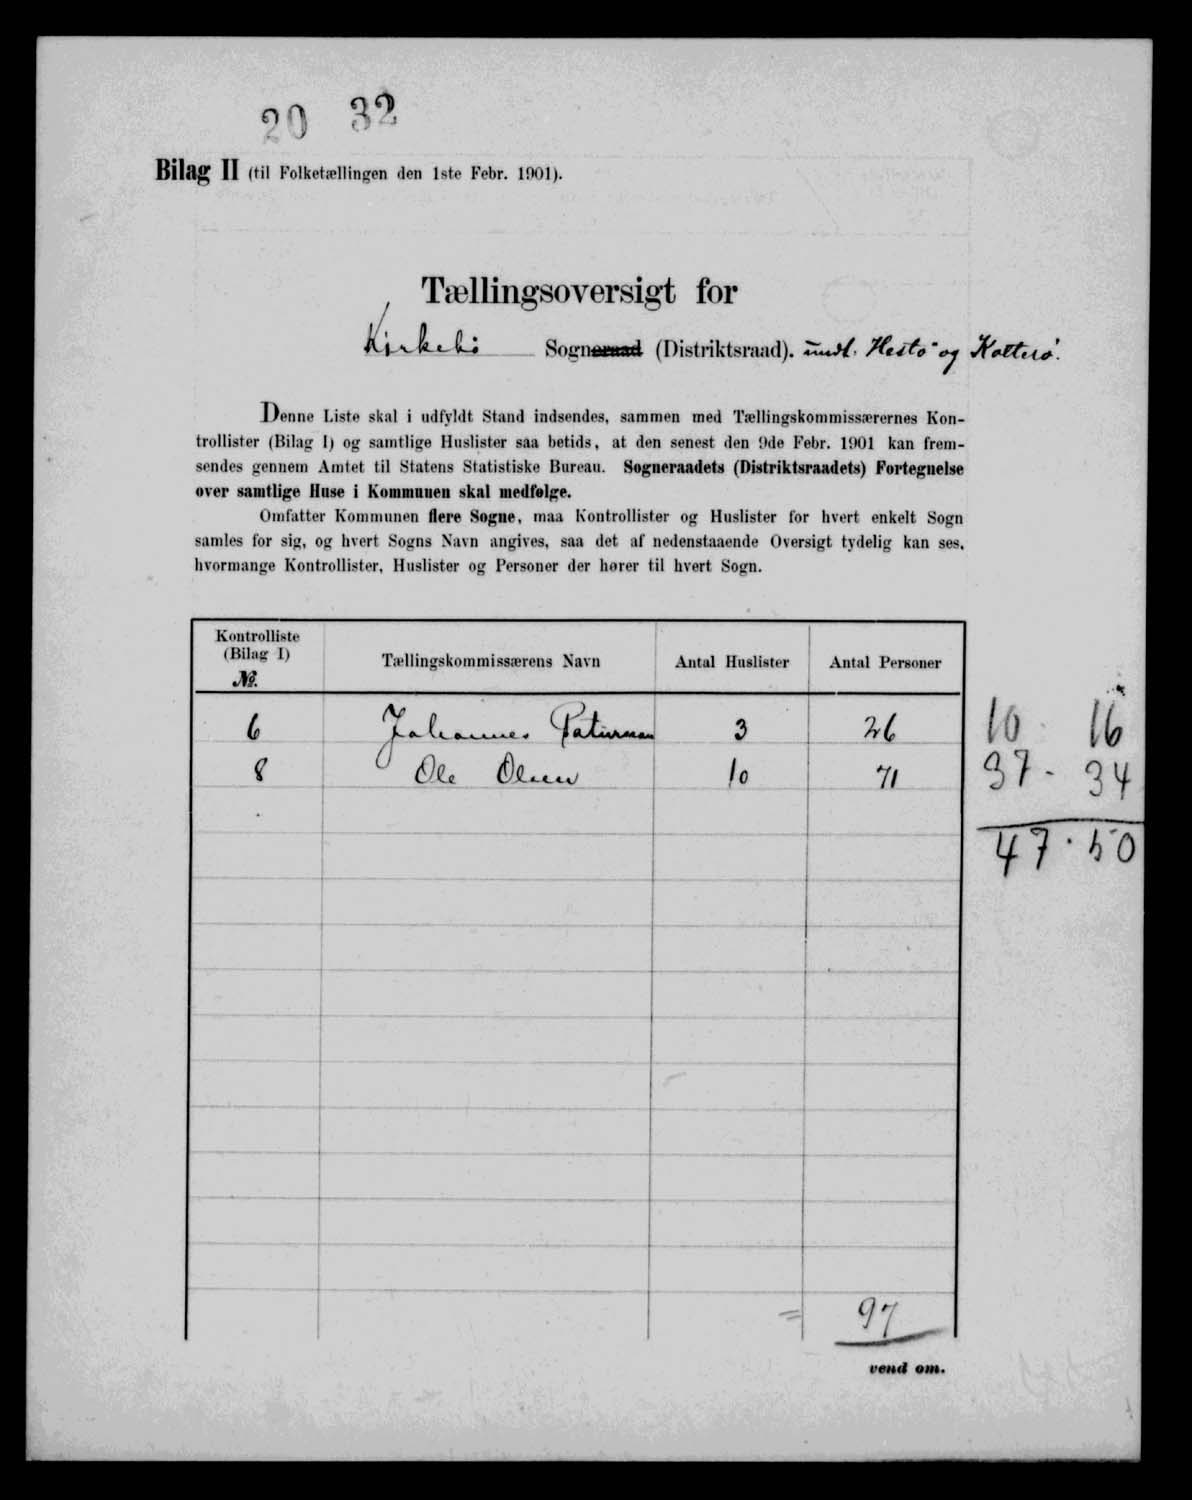 20 32
Bilag II (til Folketællingen den 1ste Febr. 1901).
Tællingsoversigt for
Kirkebø Sogneraad (Distriktsraad). undt. Hestø og Kolterø.
Denne Liste skal i udfyldt Stand indsendes, sammen med Tællingskommissærernes Kon-
trollister (Bilag I) og samtlige Huslister saa betids, at den senest den 9de Febr. 1901 kan frem-
sendes gennem Amtet til Statens Statistiske Bureau. Sogneraadets (Distriktsraadets) Fortegnelse
over samtlige Huse i Kommunen skal medfølge.
Omfatter Kommunen flere Sogne, maa Kontrollister og Huslister for hvert enkelt Sogn
samles for sig, og hvert Sogns Navn angives, saa det af nedenstaaende Oversigt tydelig kan ses,
hvormange Kontrollister, Huslister og Personer der hører til hvert Sogn.
Kontrolliste
(Bilag I)
№.
Tællingskommissærens Navn
Antal Huslister
Antal Personer
6 Johannes Patursson 3 26 10 16
8 Ole Olsen 10 71 37 - 34
47 · 50
= 97
vend om.